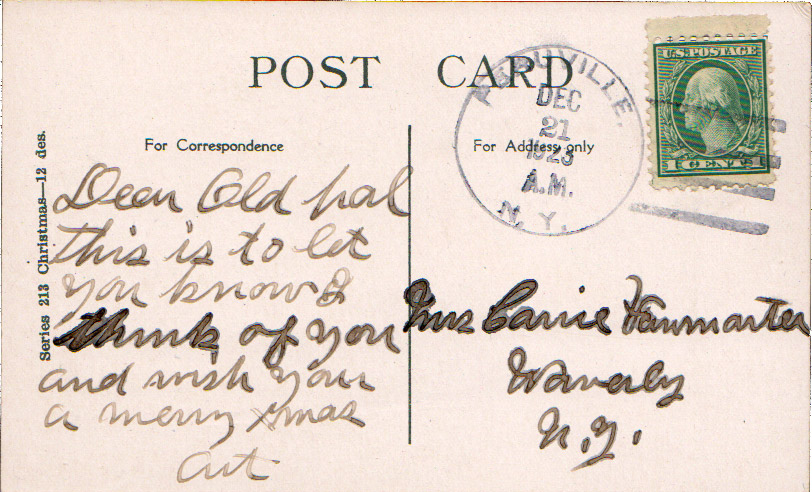 POST CARD
For Correspondence
For Address only
Series 213 Christmas—12 des.
DEC
21
1923
A.M.
N.Y.
U.S. POSTAGE
1 CENT 1
Dear Old pal
this is to let
you know I
think of you
and wish you
a merry xmas
Art
Mrs Carrie Vanmarter
Waverly
N.Y.